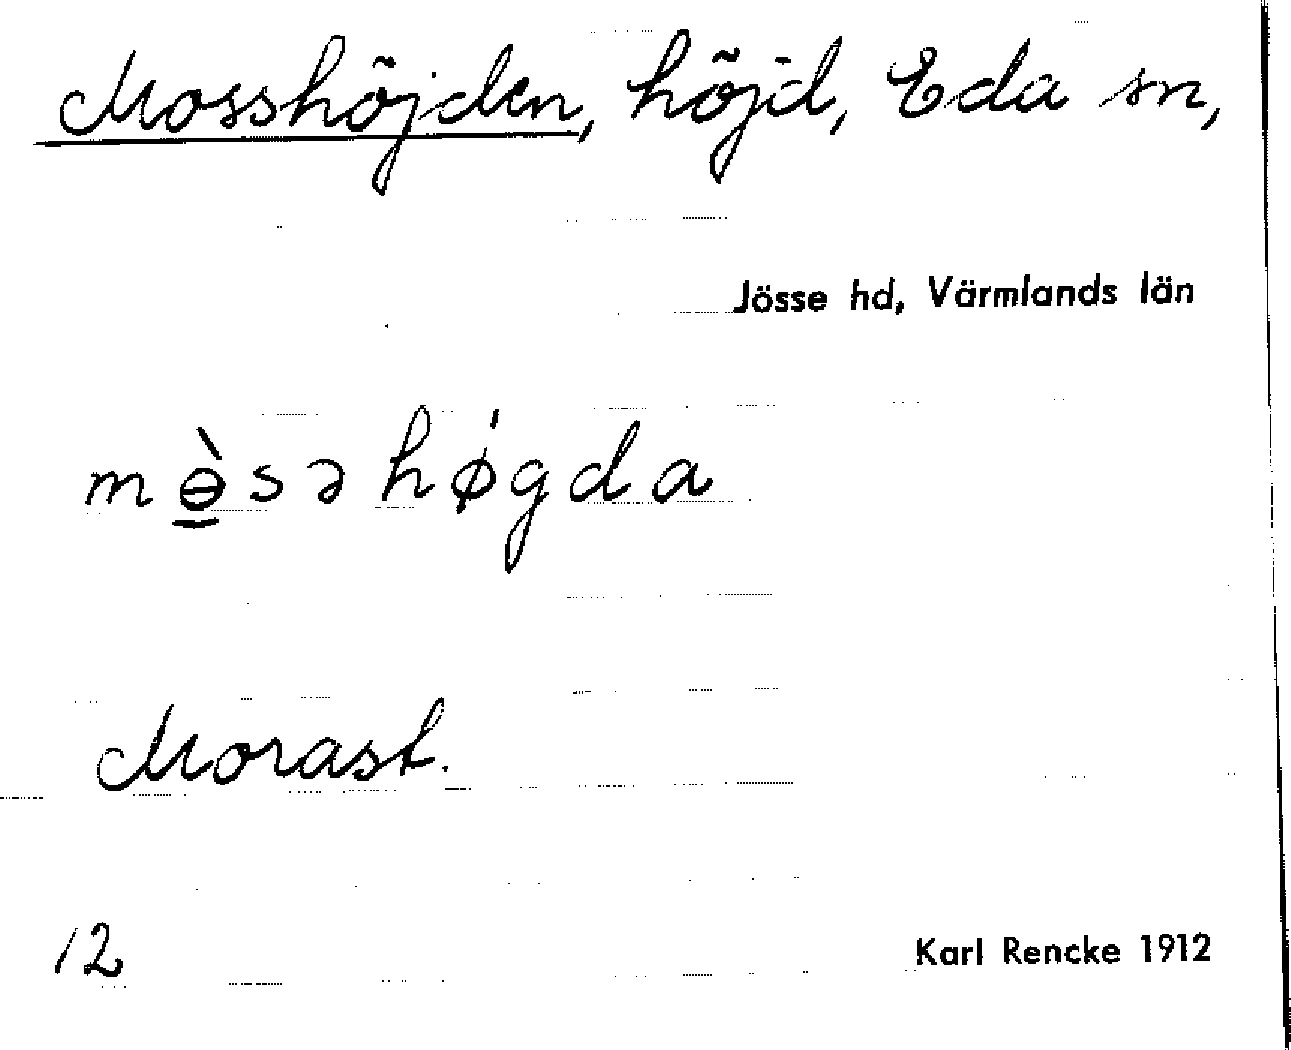 Mosshöjden, höjd, Eda sn,
Jösse hd, Värmlands län
mɵ̠̀sə hǿgda
Morast.
12
Karl Rencke 1912